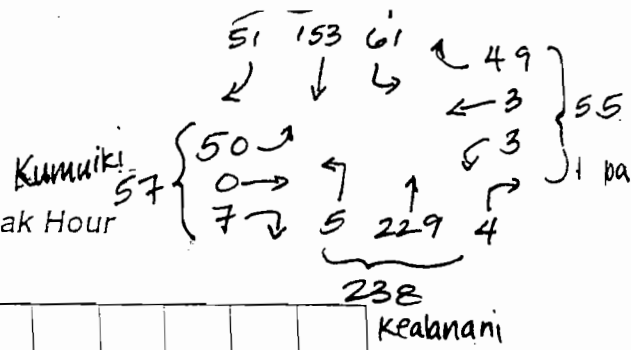 51 153 61
49
3
55
50
3
Kumuiki
57
0
1 pa
ak Hour
7
5 229 4
238
Kealanani